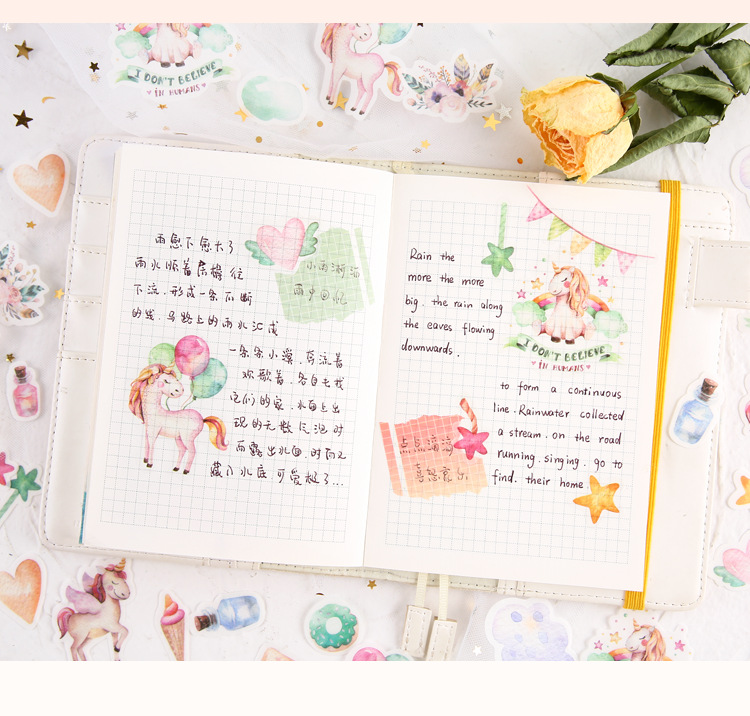 I DON'T BELIEVE
IN HUMANS
雨愈下愈大了
雨水顺着房檐往
下流.形成一条不断
的线.马路上的雨水汇成
一条条小溪.奔流着
欢歌着.各自去找
它们的家.水面上出
现的无数气泡时
而露出水面.时而又
藏入水底.可爱极了...
小雨淅沥
雨中回忆
Rain the
more the more
big . the rain along
the eaves flowing
downwards .
I DON'T BELIEVE
IN HUMANS
to form a continuous
line . Rainwater collected
a stream . on the road
running . singing . go to
find . their home .
点点滴滴
喜怒哀乐